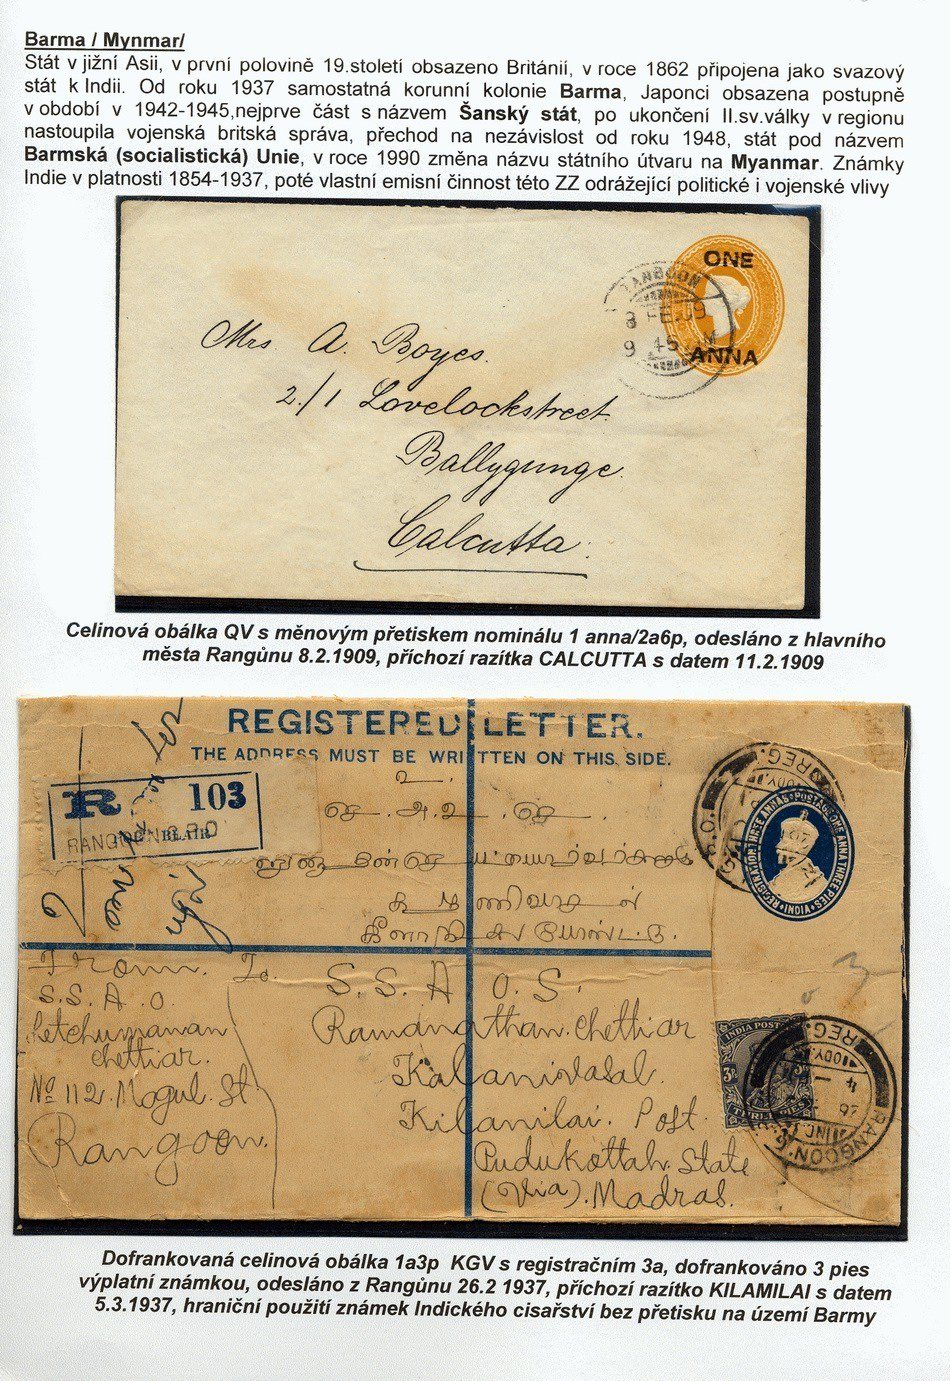 Barma / Mynmar/
Stát v jižní Asii, v první polovině 19.století obsazeno Británií, v roce 1862 připojena jako svazový
stát k Indii. Od roku 1937 samostatná korunní kolonie Barma, Japonci obsazena postupně
v období v 1942-1945,nejprve část s názvem Šanský stát, po ukončení II.sv.války v regionu
nastoupila vojenská britská správa, přechod na nezávislost od roku 1948, stát pod názvem
Barmská (socialistická) Unie, v roce 1990 změna názvu státního útvaru na Myanmar. Známky
Indie v platnosti 1854-1937, poté vlastní emisní činnost této ZZ odrážející politické i vojenské vlivy
ONE
ANNA
8 FE 09
9 45 M
Mrs. A. Boyes.
2/1 Lovelockstreet.
Ballygunge.
Calcutta.
Celinová obálka QV s měnovým přetiskem nominálu 1 anna/2a6p, odesláno z hlavního
města Rangůnu 8.2.1909, příchozí razítka CALCUTTA s datem 11.2.1909
REGISTERED LETTER.
THE ADDRESS MUST BE WRITTEN ON THIS SIDE.
R 103
RANGOON G.P.O
REG.
REGISTRATION THREE ANNAS POSTAGE ONE ANNA THREE PIES
INDIA
உ
From.
S. S. A. O.
Letchumanan
Chettiar.
No 112. Mogul. St.
Rangoon.
To.
S. S. A O. S.
Ramanathan. Chettiar
Kalanivasal.
Kilanilai. Post.
Pudukottah. State
(Via). Madras.
INDIA POSTAGE
3Ps
THREE PIES
REG.
RANGOON G.P.O.
Dofrankovaná celinová obálka 1a3p KGV s registračním 3a, dofrankováno 3 pies
výplatní známkou, odesláno z Rangůnu 26.2 1937, příchozí razítko KILAMILAI s datem
5.3.1937, hraniční použití známek Indického cisařství bez přetisku na území Barmy